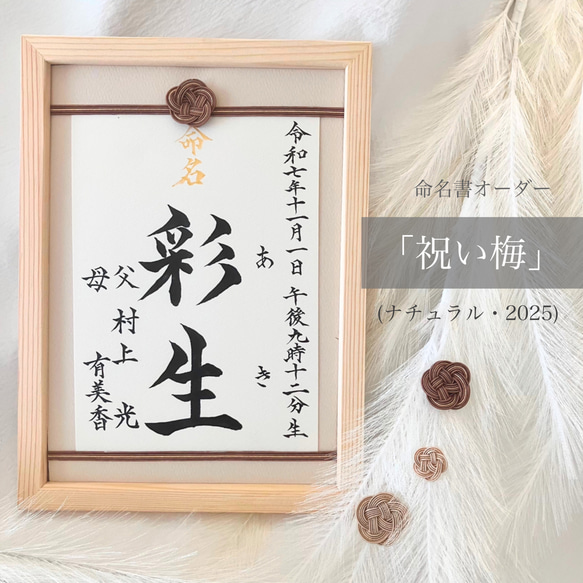 命名
令和七年十一月一日 午後九時十二分生
彩生
あき
父 村上 光
母 有美香
命名書オーダー
「祝い梅」
(ナチュラル・2025)